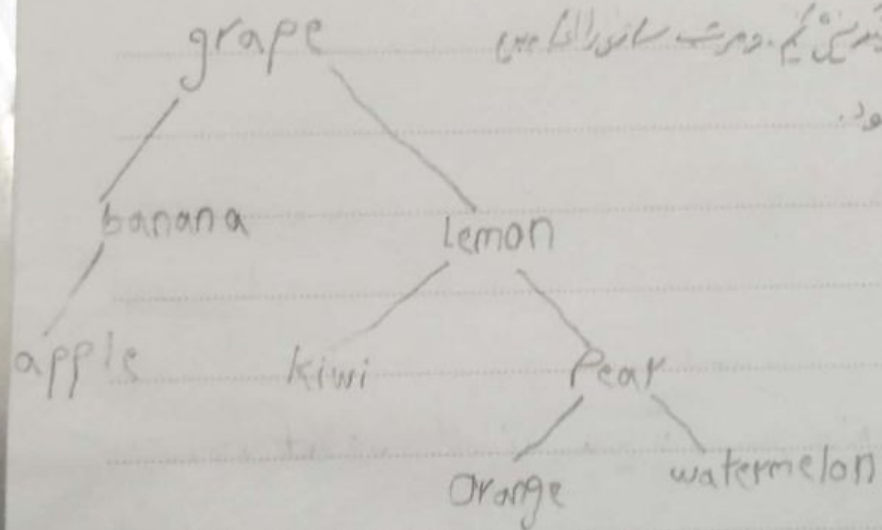 grape
banana
lemon
apple kiwi Pear
Orange watermelon